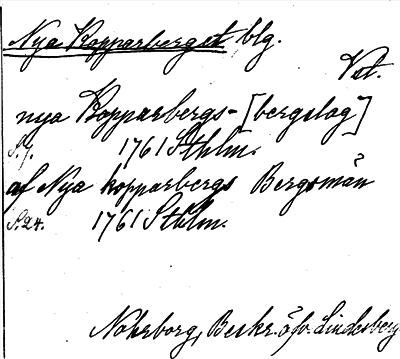 Nya Kopparberget blg.
Vst.
nya Kopparbergs-[bergslag]
S. 7. 1761 Sthlm.
af Nya kopparbergs Bergsmän
S. 24. 1761 Sthlm.
Nohrborg, Beskr. öfv. Lindesberg